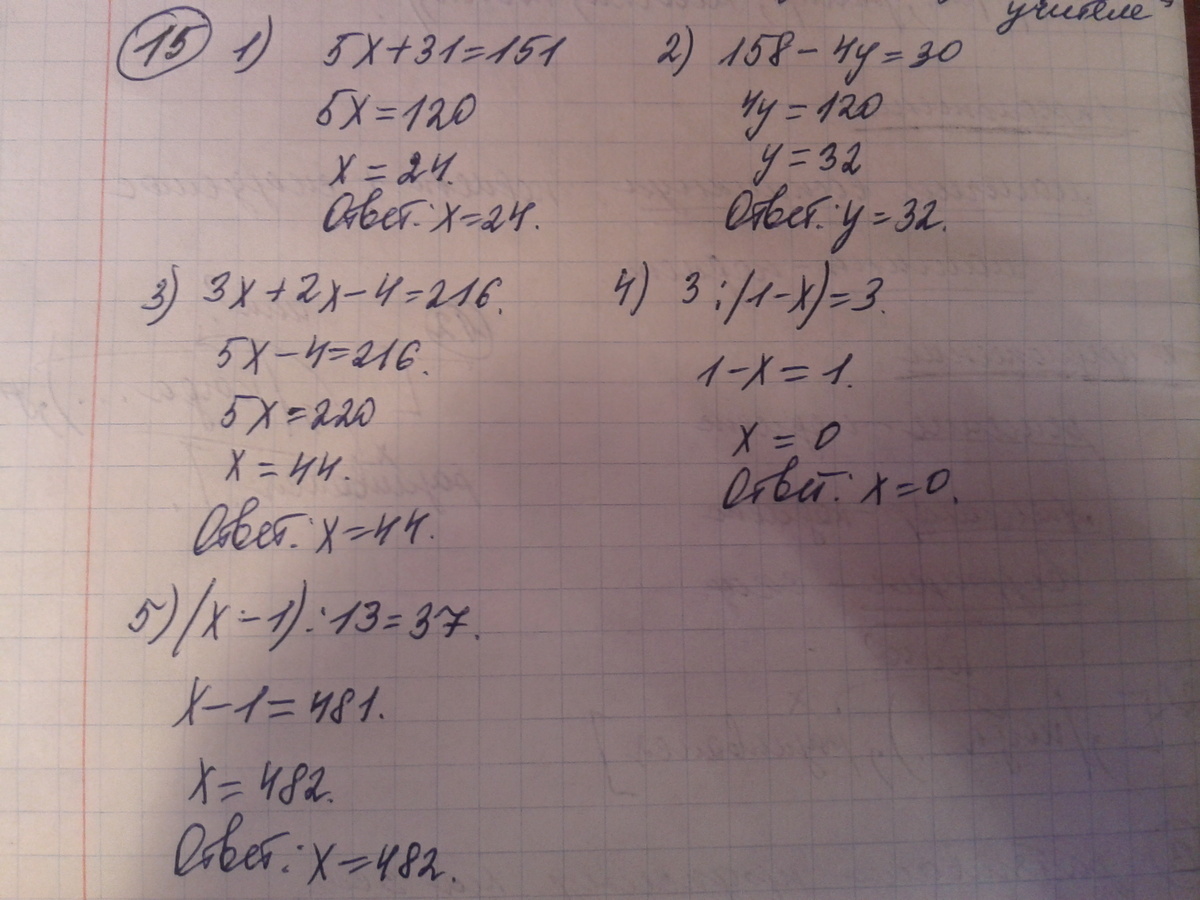 учителе
15 1) 5x+31=151
5x=120
x=24
Ответ: x=24.
2) 158-4y=30
4y=120
y=32
Ответ: y=32.
3) 3x+2x-4=216.
5x-4=216.
5x=220
x=44.
Ответ: x=44.
4) 3:(1-x)=3.
1-x=1.
x=0
Ответ: x=0.
5) (x-1):13=37.
x-1=481.
x=482.
Ответ: x=482.